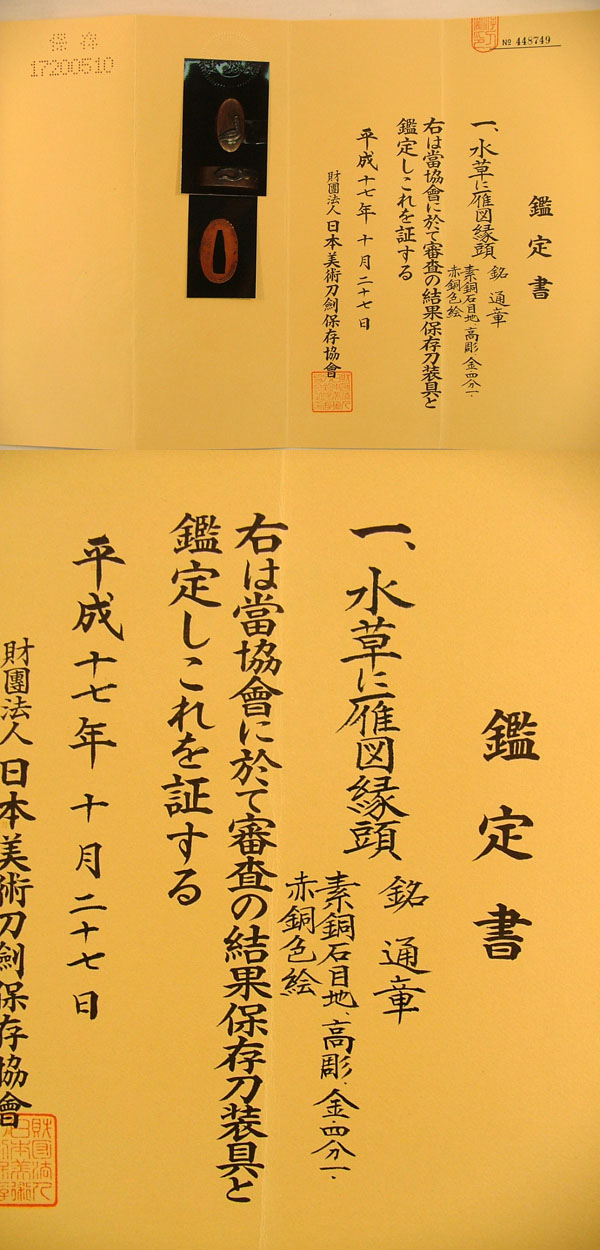 保存
17200510
№ 448749
鑑定書
一、水草に雁図縁頭
銘 通章
素銅石目地、高彫、金・四分一・
赤銅色絵
右は當協會に於て審査の結果保存刀装具と
鑑定しこれを証する
平成十七年十月二十七日
財團法人日本美術刀劍保存協會
鑑定書
一、水草に雁図縁頭
銘 通章
素銅石目地、高彫、金・四分一・
赤銅色絵
右は當協會に於て審査の結果保存刀装具と
鑑定しこれを証する
平成十七年十月二十七日
財團法人日本美術刀劍保存協會